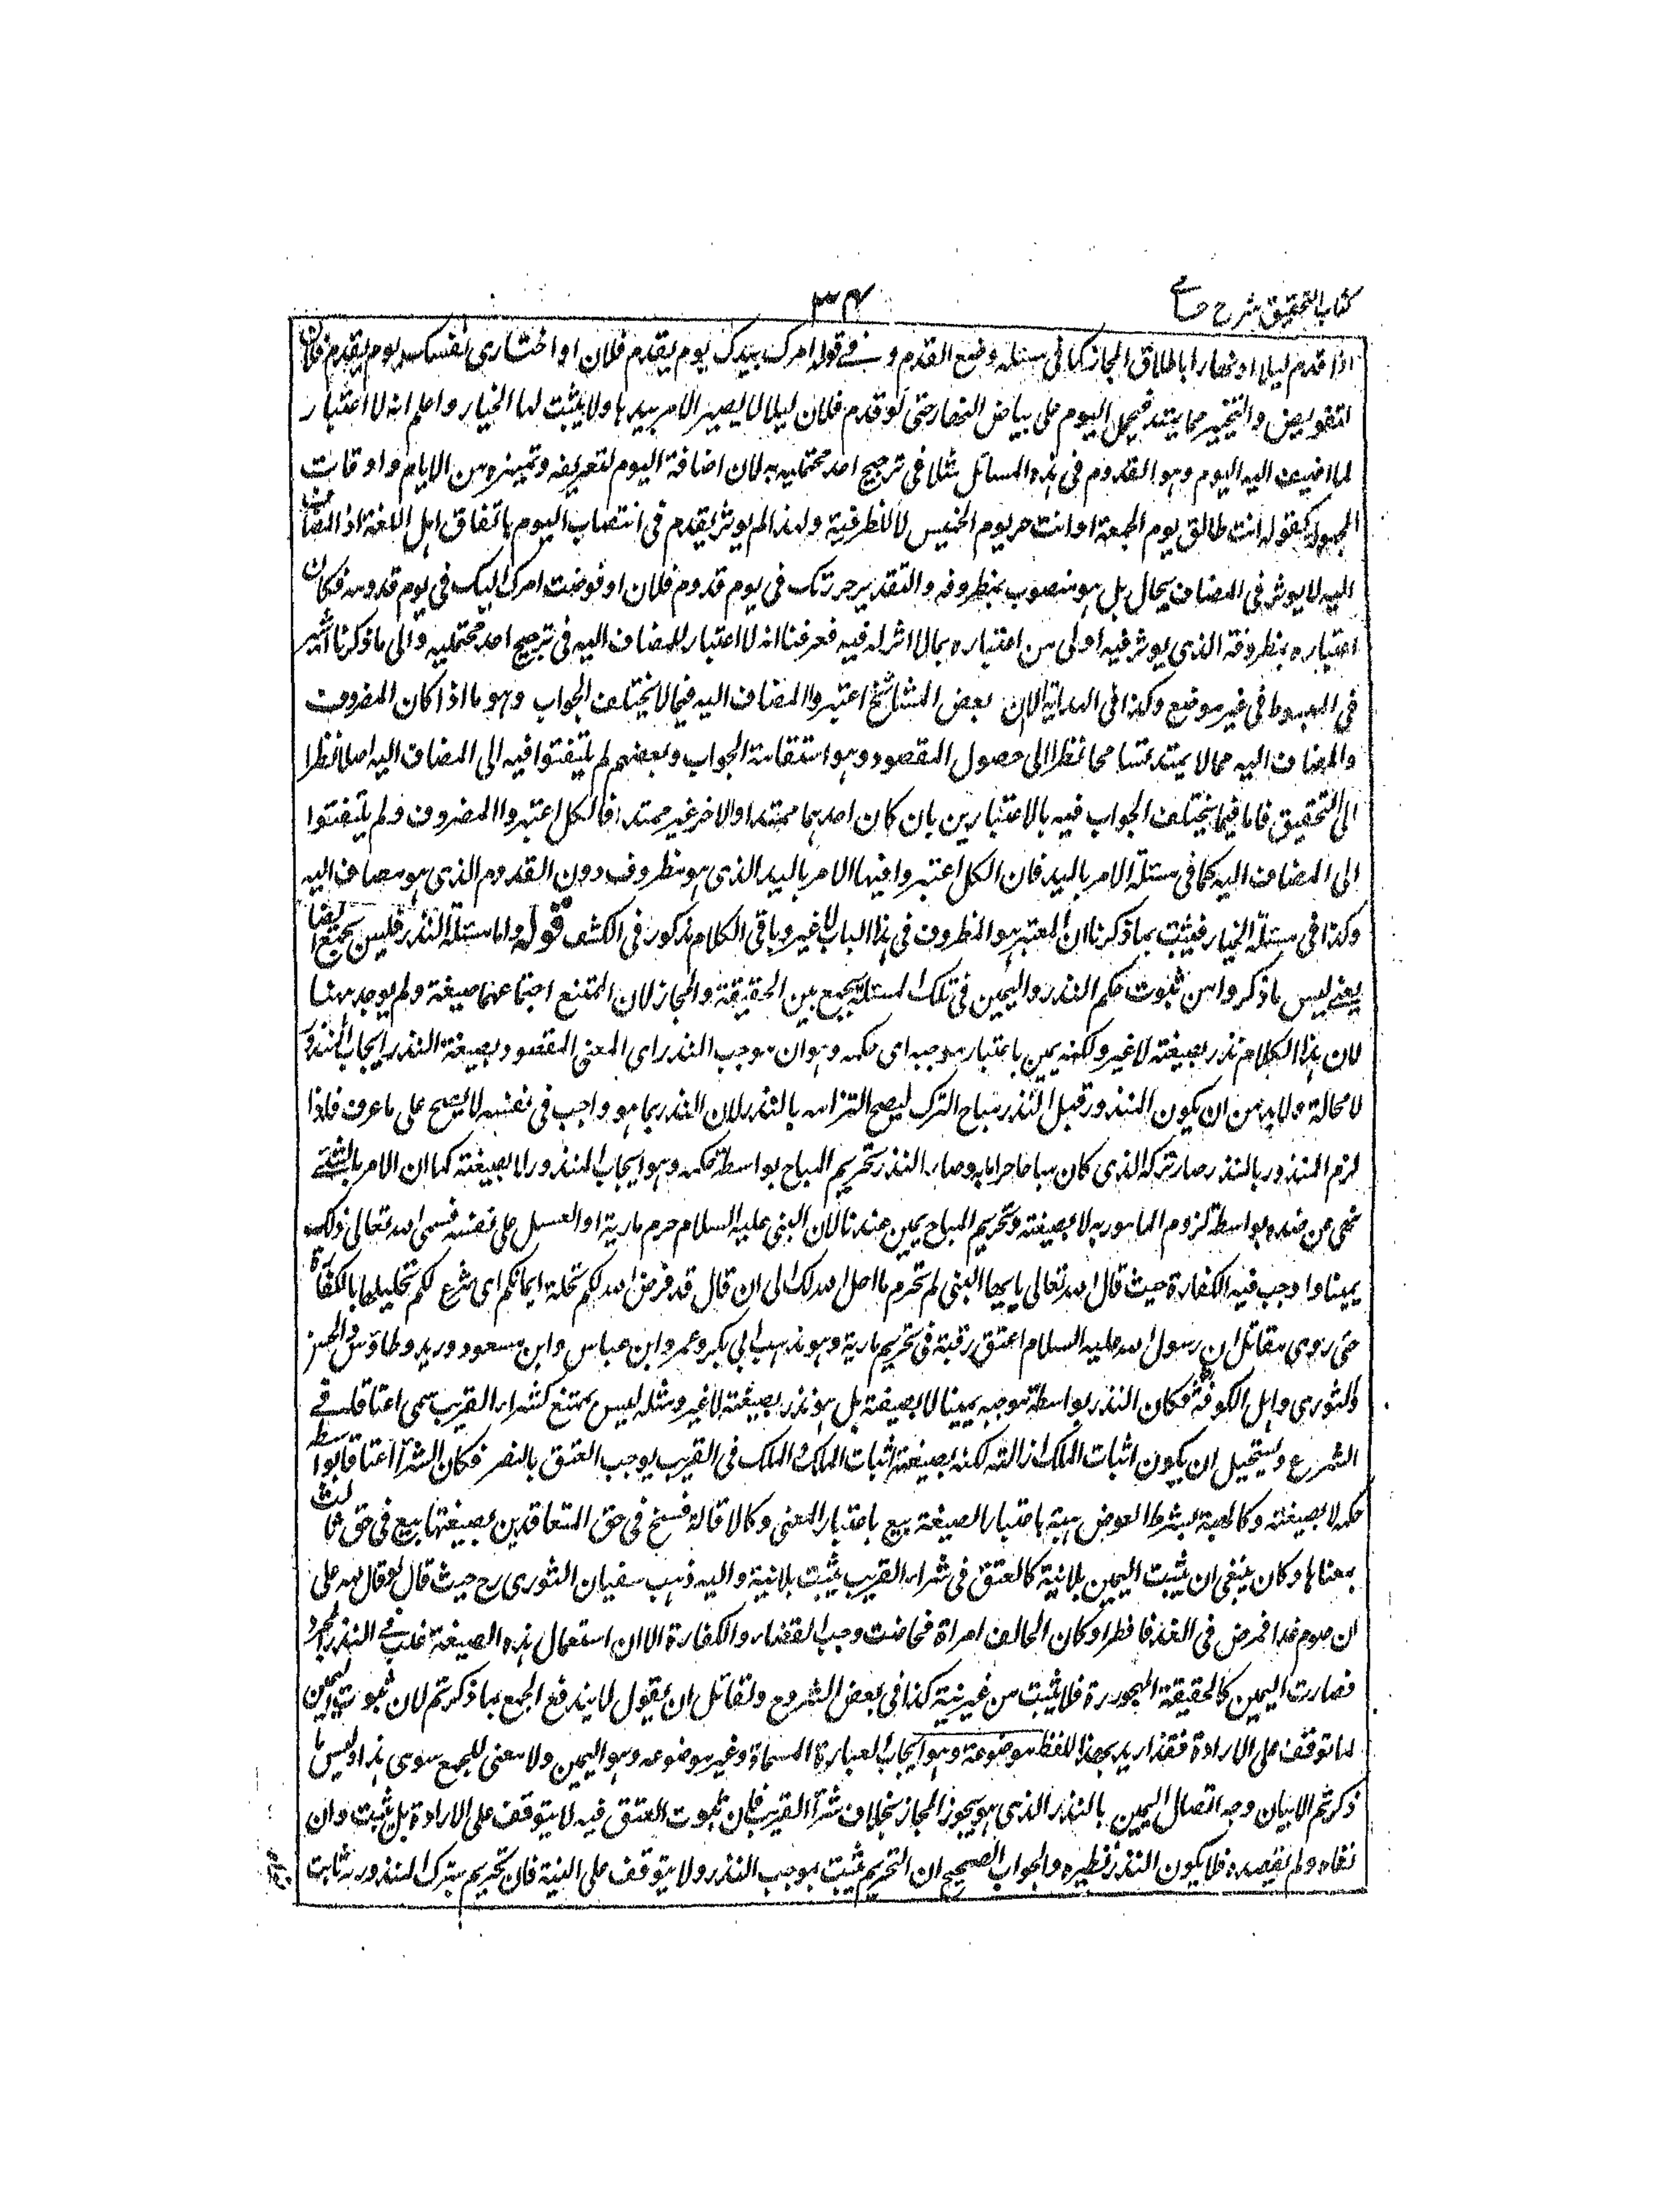 كتاب التحقيق شرح حسامي
٣٤
اذا قدم ليلا او نهارا باطلاق المجاز كما في مسئلة وضع القدم وفي قوله امرك بيدك يوم يقدم فلان او اختاري نفسك يوم يقدم فلان
التفويض والتخيير مما يمتد فيحمل اليوم على بياض النهار حتى لو قدم فلان ليلا لا يصير الامر بيدها ولا يثبت لها الخيار واعلم انه لا اعتبار
لما اضيف اليه اليوم وهو القدوم في هذه المسائل مثلا في ترجيح احد محتمليه به لان اضافة اليوم لتعريفه وتمييزه من الايام واوقات
المجهولة كقوله انت طالق يوم الجمعة او انت حر يوم الخميس لا للظرفية ولهذا لم يوثر يقدم في انتصاب اليوم باتفاق اهل اللغة اذ المضاف
اليه لا يوثر في المضاف بحال بل هو منصوب بمظروفه والتقدير حررتك في يوم قدوم فلان او فوضت امرك اليك في يوم قدومه فكان
اعتباره بمظروفه الذي يوثر فيه اولى من اعتباره بما لا اثر له فيه فعرفنا انه لا اعتبار للمضاف اليه في ترجيح احد محتمليه والى ما ذكرنا اشير
في المبسوط في غير موضع وكذا في الهداية الا ان بعض المشائخ اعتبروا المضاف اليه فيما لا يختلف الجواب وهو ما اذا كان المظروف
والمضاف اليه مما لا يمتد تسامحا نظرا الى حصول المقصود وهو استقامة الجواب وبعضهم لم يلتفتوا فيه الى المضاف اليه اصلا نظرا
الى التحقيق فاما فيما يختلف الجواب فيه بالاعتبارين بان كان احدهما ممتدا والاخر غير ممتد فالكل اعتبروا المظروف ولم يلتفتوا
الى المضاف اليه كما في مسئلة الامر باليد فان الكل اعتبروا فيها الامر باليد الذي هو مظروف دون القدوم الذي هو مضاف اليه
وكذا في مسئلة الخيار فثبت بما ذكرنا ان المعتبر هو المظروف في هذا الباب لا غير وباقي الكلام مذكور في الكشف قوله واما مسئلة النذر فليس بجمع ايضا
يعني ليس ما ذكروا من ثبوت حكم النذر واليمين في تلك المسئلة بجمع بين الحقيقة والمجاز لان الممتنع اجتماعهما صيغة ولم يوجد ههنا
لان هذا الكلام نذر بصيغته لا غير ولكنه يمين باعتبار موجبه اي حكمه وهو ان موجب النذر اي المعنى المقصود بصيغة النذر ايجاب المنذور
لا محالة ولا بد من ان يكون المنذور قبل النذر مباح الترك ليصح التزامه بالنذر لان النذر بما هو واجب في نفسه لا يصح على ما عرف فاذا
لزم المنذور بالنذر صار تركه الذي كان مباحا حراما به وصار النذر تحريم المباح بواسطة حكمه وهو ايجاب المنذور لا بصيغته كما ان الامر بالشئ
نهي عن ضده بواسطة لزوم المامور به لا بصيغته وتحريم المباح يمين عندنا لان النبي عليه السلام حرم مارية او العسل على نفسه فسمى الله تعالى ذلك
يمينا واوجب فيه الكفارة حيث قال الله تعالى يايها النبي لم تحرم ما احل الله لك الى ان قال قد فرض الله لكم تحلة ايمانكم اي شرع لكم تحليلها بالكفارة
حتى روى مقاتل ان رسول الله عليه السلام اعتق رقبة في تحريم مارية وهو مذهب ابي بكر وعمر وابن عباس وابن مسعود وزيد وطاوس والحسن
والثوري واهل الكوفة فكان النذر بواسطة موجبه يمينا لا بصيغته بل هو نذر بصيغته لا غير ومثله ليس بممتنع كشراء القريب سمي اعتاقا في
الشرع ويستحيل ان يكون اثبات الملك ازالته لكنه بصيغته اثبات الملك والملك في القريب يوجب العتق بالنص فكان الشرآ اعتاقا بواسطة
حكمه لا بصيغته وكالهبة بشرط العوض هبة باعتبار الصيغة بيع باعتبار المعنى وكالاقالة فسخ في حق المتعاقدين بصيغتها بيع في حق ثالث
بمعناها وكان ينبغي ان يثبت اليمين بلانية كالعتق في شراء القريب يثبت بلانية واليه ذهب سفيان الثوري رح حيث قال لو قال لله على
ان صوم غدا فمرض في الغد فافطر او كان الحالف امراة فحاضت وجب القضاء والكفارة الا ان استعمال هذه الصيغة غلب في النذر المجرد
فصارت اليمين كالحقيقة المهجورة فلا يثبت من غير نية كذا في بعض الشروح ولقائل ان يقول لا يندفع الجمع بما ذكرتم لان ثبوت اليمين
لما توقف على الارادة فقد اريد بهذا اللفظ موضوعه وهو ايجاب العبارة المسماة وغير موضوعه وهو اليمين ولا معنى للجمع سوى هذا وليس ما
ذكرتم الا بيان وجه اتصال اليمين بالنذر الذي هو يجوز المجاز بخلاف شرآ القريب فان ثبوت العتق فيه لا يتوقف على الارادة بل يثبت وان
نفاه ولم يقصده فلا يكون النذر نظيره والجواب الصحيح ان التحريم يثبت بموجب النذر ولا يتوقف على النية فان تحريم ترك المنذور به ثابت